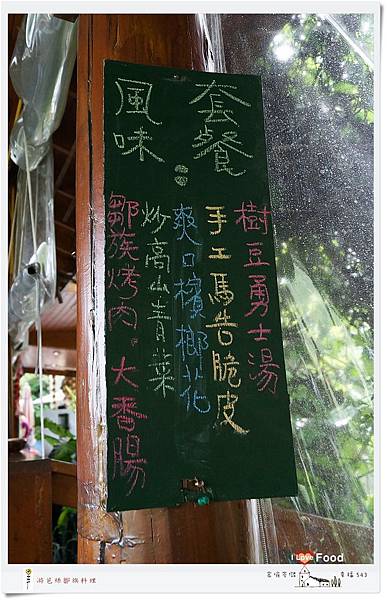 風味
套餐：
樹豆勇士湯
手工馬告脆皮
爽口檳榔花
炒高山青菜
鄒族烤肉。大香腸
游芭絲鄒族料理
I Love Food
幸福 543